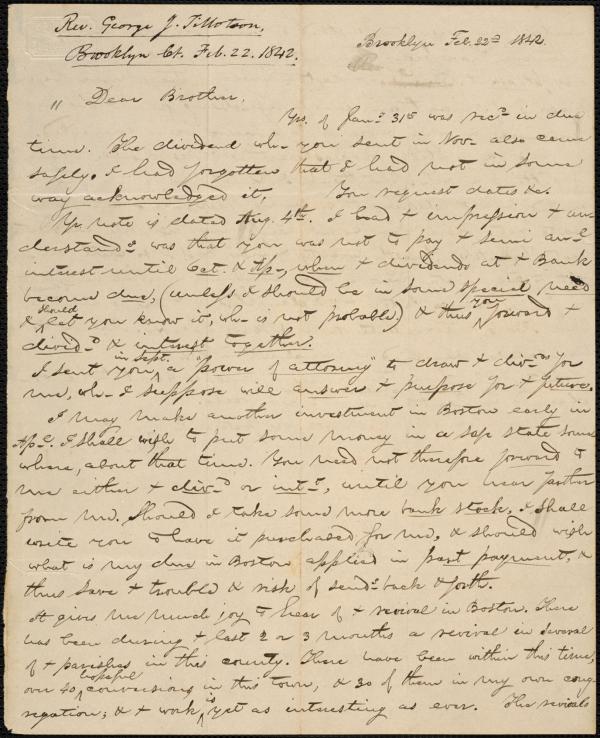 Rev. George J. Tillotson,
Brooklyn Ct. Feb. 22. 1842.
Brooklyn Feb. 22d 1842.
" Dear Brother,
Yrs. of Jany 31st was recd in due
time. The dividend wh- you sent in Nov- also came
safely. I had forgotten that I had not in some
way acknowledged it. You request dates &c.
Yr. note is dated Aug. 4th. I had + impression & un-
derstandg was that you was not to pay + semi anl
interest until Oct. & Ap-, when + dividends at + Bank
become due, (unless I should be in some special need
& should let you know it, wh- is not probable) & thus you forward +
divid-d & interest together.
I sent you in Sept. a "power of attorny" to draw + divds for
me, wh- I suppose will answer + purpose for + future.
I may make another investment in Boston early in
Apl. I shall wish to put some money in a safe state some
where, about that time. You need not therefore forward to
me either + divd or intt, until you hear farther
from me. Should I take some more bank stock, I shall
write you to have it purchased for me, & should wish
what is my due in Boston applied in part payment, &
thus save + trouble & risk of sendg back & forth.
It gives me much joy to hear of + revival in Boston. There
has been during + last 2 or 3 months a revival in several
of + parishes in this county. There have been within this time,
over 40 hopeful conversions in this town, & 30 of them in my own cong-
regation; & + work is yet as interesting as ever. The revivals